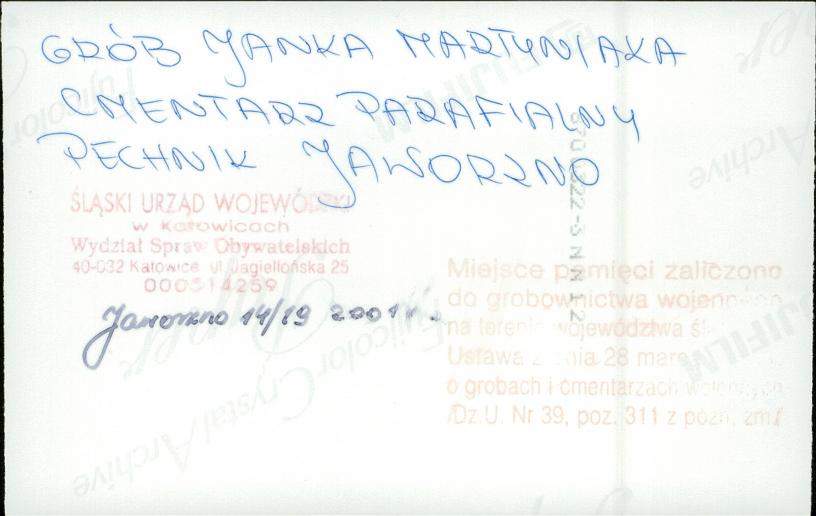 GRÓB JANKA MARTYNIAKA
CMENTARZ PARAFIALNY
PECHNIK JAWORZNO
ŚLĄSKI URZĄD WOJEWÓDZKI
w Katowicach
Wydział Spraw Obywatelskich
40-032 Katowice ul. Jagiellońska 25
000514259
Jaworzno 14/19 2001 r.
Miejsce pamięci zaliczono
do grobownictwa wojennego
na terenie województwa
Ustawa z dnia 28
o grobach i cmentarzach wojennych
/Dz.U. Nr 39, poz. 311 z późn. zm/
FUJIFILM
FUJIFILM
Fujicolor
Crystal Archive
Archive